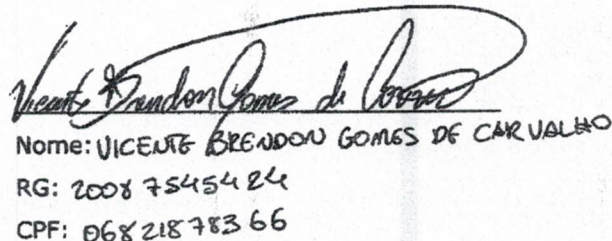 Vicente Brendon Gomes de Carvalho
Nome: VICENTE BRENDON GOMES DE CARVALHO
RG: 2008 7545424
CPF: 068 218 783 66